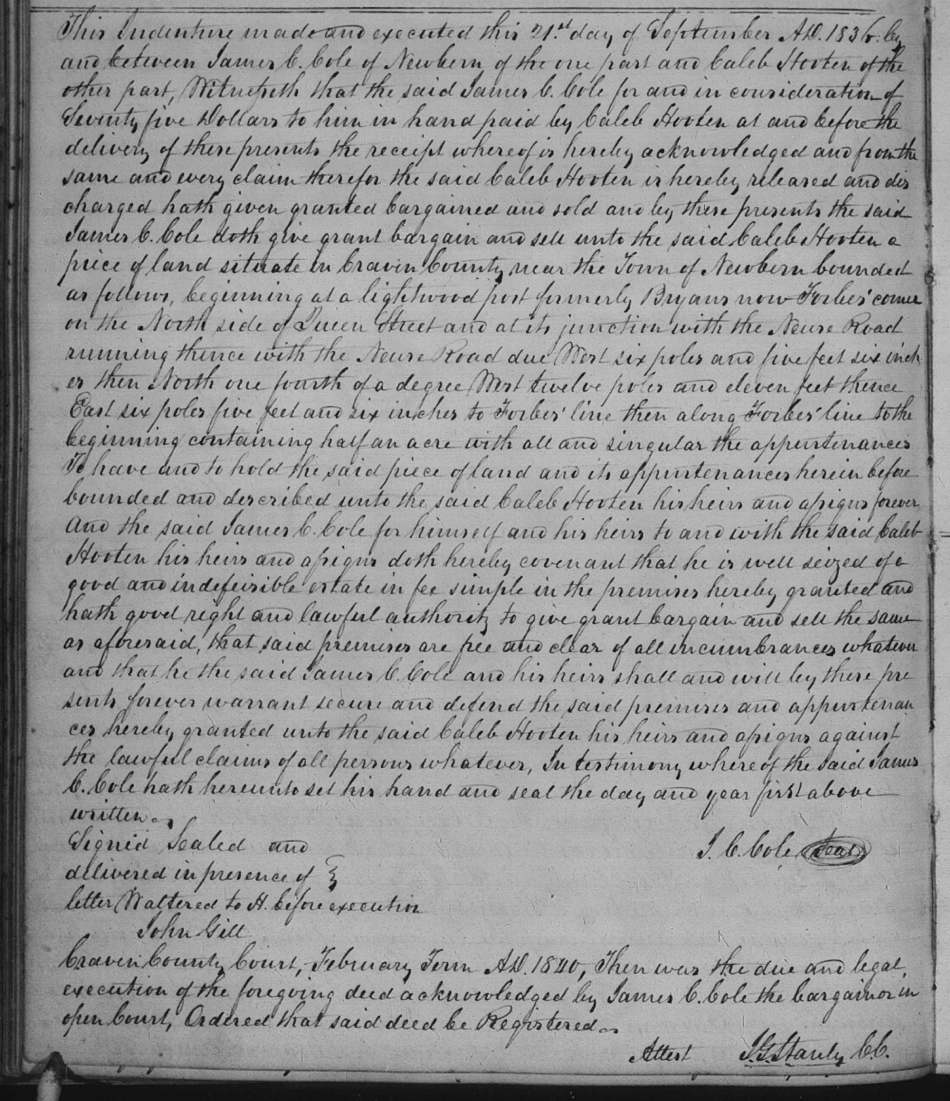 This Indenture made and executed this 21st day of September A.D. 1836. by
and between James C. Cole of Newbern of the one part and Caleb Hooten of the
other part, Witnesseth that the said James C. Cole for and in consideration of
Seventy five Dollars to him in hand paid by Caleb Hooten at and before the
delivery of these presents the receipt whereof is hereby acknowledged and from the
same and every claim therefor the said Caleb Hooten is hereby released and dis
charged hath given granted bargained and sold and by these presents the said
James C. Cole doth give grant bargain and sell unto the said Caleb Hooten a
piece of land situate in Craven County near the Town of Newbern bounded
as follows, beginning at a lightwood post formerly Bryans now Forbes' corner
on the North side of Queen Street and at its junction with the Neuse Road
running thence with the Neuse Road due West six poles and five feet six inch
es then North one fourth of a degree West twelve poles and eleven feet thence
East six poles five feet and six inches to Forbes' line then along Forbes' line to the
beginning containing half an acre with all and singular the appurtenances
To have and to hold the said piece of land and its appurtenances herein before
bounded and described unto the said Caleb Hooten his heirs and assigns forever
And the said James C. Cole for himself and his heirs to and with the said Caleb
Hooten his heirs and assigns doth hereby covenant that he is well seized of a
good and indefeisible estate in fee simple in the premises hereby granted and
hath good right and lawful authority to give grant bargain and sell the same
as aforesaid, that said premises are free and clear of all incumbrances whatever
and that he the said James C. Cole and his heirs shall and will by these pre
sents forever warrant secure and defend the said premises and appurtenan
ces hereby granted unto the said Caleb Hooten his heirs and assigns against
the lawful claims of all persons whatever, In testimony whereof the said James
C. Cole hath hereunto set his hand and seal the day and year first above
written.
Signed Sealed and
J. C. Cole Seal
delivered in presence of
letter W altered to H. before execution
John Gill
Craven County Court, February Term A.D. 1840, Then was the due and legal
execution of the foregoing deed acknowledged by James C. Cole the bargainor in
open Court, Ordered that said deed be Registered.
Attest J. G. Stanly C.C.